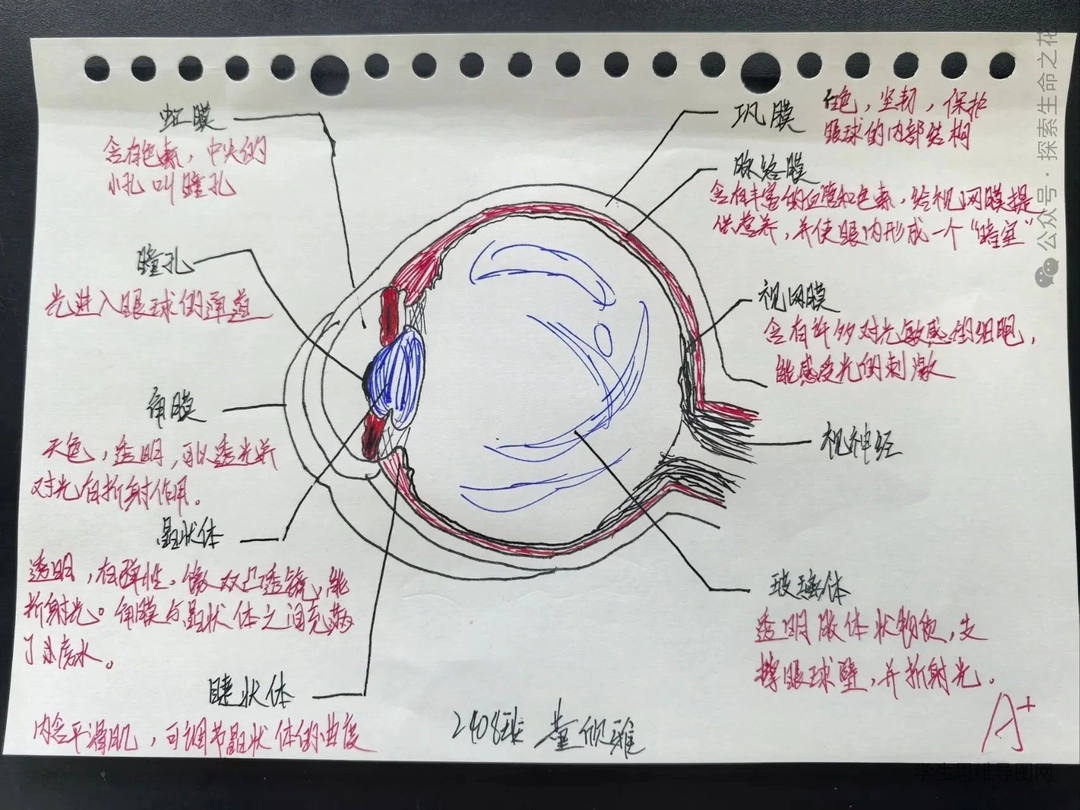 虹膜
含有色素，中央的
小孔叫瞳孔
瞳孔
光进入眼球的通道
角膜
无色，透明，可以透光并
对光有折射作用。
晶状体
透明，有弹性，像双凸透镜，能
折射光。角膜与晶状体之间充满
了房水。
睫状体
内含平滑肌，可调节晶状体的曲度
巩膜
白色，坚韧，保护
眼球的内部结构
脉络膜
含有丰富的血管和色素，给视网膜提
供营养，并使眼内形成一个“暗室”
视网膜
含有许多对光敏感的细胞，
能感受光的刺激
视神经
玻璃体
透明胶体状物质，支
撑眼球壁，并折射光。
2408班 董欣雅
A+
公众号·探索生命之花
学生思维导图网